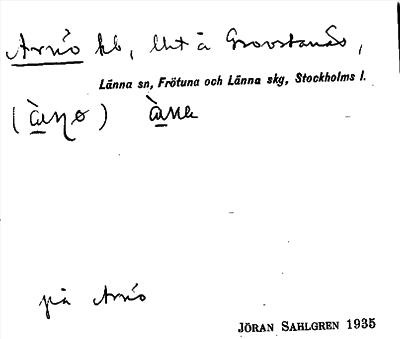 Arnö hb, lht å Grovstanäs,
Länna sn, Frötuna och Länna skg, Stockholms l.
(àŋo) àna
på Arnö
JÖRAN SAHLGREN 1935